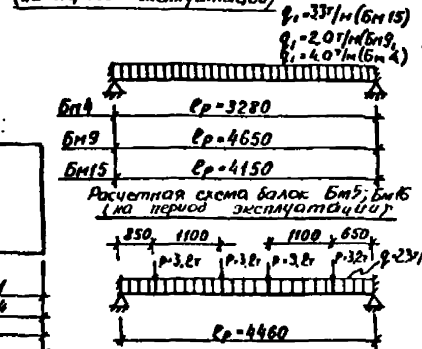 q₁=33т/м(Бм15)
q₁=2.0т/м(Бм9,
q₁=4.0т/м(Бм4)
Бм4 ℓр=3280
Бм9 ℓр=4650
Бм15 ℓр=4150
Расчетная схема балок Бм5; Бм16
(на период эксплуатации)
850 1100 1100 650
P=3,2т P=3,2т P=3,2т P=3,2т q=23т/
ℓр=4460